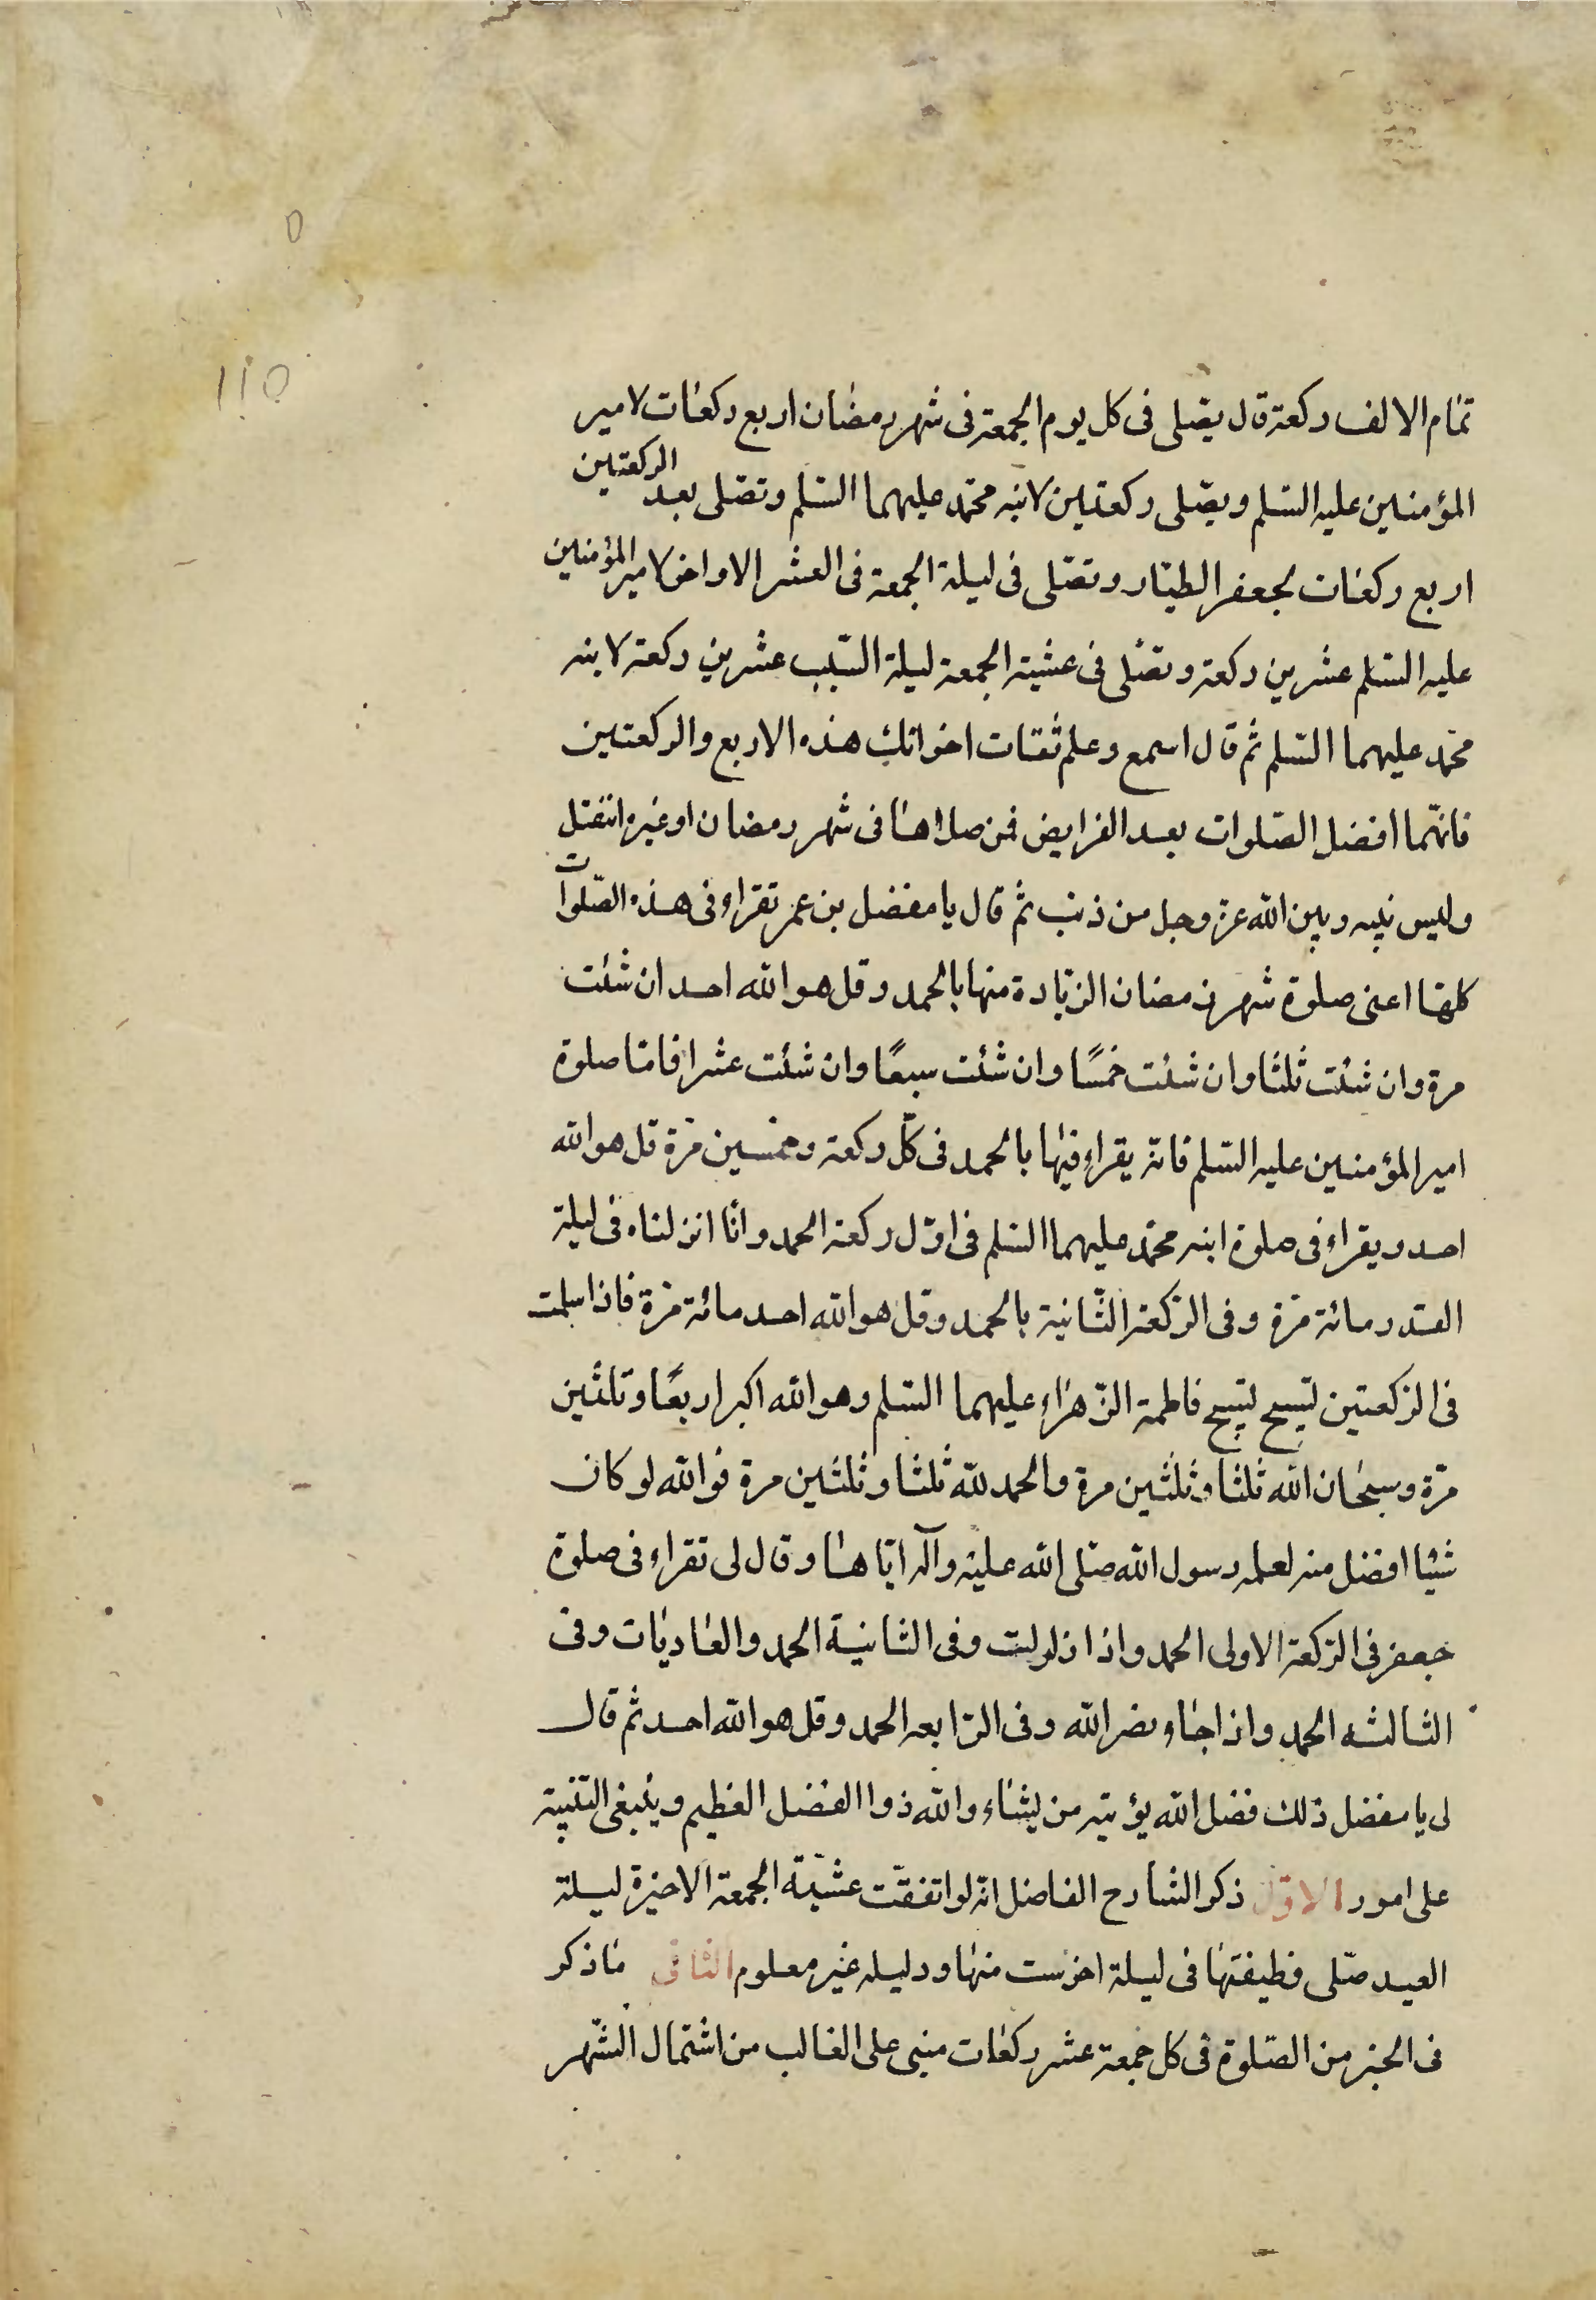 ١١٥
تمام الالف ركعة قال يصلى فى كل يوم الجمعة فى شهر رمضان اربع ركعات لامير
المؤمنين عليه السّلم ويصلّى ركعتين لابنه محمّد عليهما السّلم وتصلّى بعد الركعتين
اربع ركعات لجعفر الطيّار وتصلّى فى ليلة الجمعة فى العشر الاواخر لامير المؤمنين
عليه السّلم عشرين ركعة وتصلّى فى عشية الجمعة ليلة السّبت عشرين ركعة لابنه
محمّد عليهما السّلم ثم قال اسمع وعلم ثقات اخوانك هذه الاربع والركعتين
فانهّما افضل الصّلوات بعد الفرايض فمن صلاها فى شهر رمضان او غيره انفتل
وليس بينه وبين الله عز وجل من ذنب ثم قال يا مفضل بن عمر تقراء فى هذه الصّلوات
كلها اعنى صلوة شهر رمضان الزيادة منها بالحمد وقل هو الله احد ان شئت
مرة وان شئت ثلثا وان شئت خمسًا وان شئت سبعًا وان شئت عشرا فامّا صلوة
امير المؤمنين عليه السّلم فانّه يقراء فيها بالحمد فى كلّ ركعة وخمسين مرّة قل هو الله
احد ويقراء فى صلوة ابنه محمّد عليهما السّلم فى اوّل ركعة الحمد وانّا انزلناه فى ليلة
القدر مائة مرّة وفى الرّكعة الثّانية بالحمد وقل هو الله احد مائة مرّة فاذا سلمت
فى الرّكعتين تسبح تسبيح فاطمة الزّهراء عليهما السّلم وهو الله اكبر اربعًا وثلثين
مرّة وسبحان الله ثلثا وثلثين مرة والحمد لله ثلثا وثلثين مرة فوالله لو كان
شيئا افضل منه لعلمه رسول الله صلّى الله عليه وآله ايّاها وقال لى تقراء فى صلوة
جعفر فى الرّكعة الاولى الحمد واذا زلزلت وفى الثانية الحمد والعاديات وفى
الثالثه الحمد واذا جاء نصر الله وفى الرّابعه الحمد وقل هو الله احد ثم قال
لى يا مفضل ذلك فضل الله يؤتيه من يشاء والله ذوا الفضل العظيم وينبغى التنبيه
على امور الاوّل ذكر الشارح الفاضل انّه لو اتفقت عشيّة الجمعة الاخيرة ليلة
العيد صلّى وظيفتها فى ليلة اخر سبت منها ودليله غير معلوم الثانى ما ذكر
فى الخبر من الصّلوة فى كل جمعة عشر ركعات مبنى على الغالب من اشتمال الشّهر